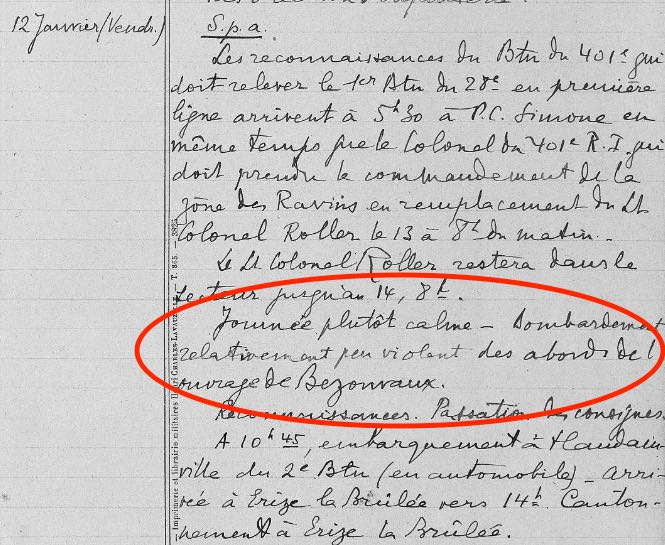 12 Janvier (Vendr.)
S.p.a.
Les reconnaissances du Btn du 401e qui
doit relever le 1er Btn du 28e en première
ligne arrivent à 5h30 à P.C. Simone en
même temps que le Colonel du 401e R.I. qui
doit prendre le commandement de la
zône des Ravins en remplacement du Lt
Colonel Roller le 13 à 8h du matin.
Le Lt Colonel Roller restera dans le
secteur jusqu'au 14, 8h.
Journée plutôt calme – Bombardement
relativement peu violent des abords de l'
ouvrage de Bezonvaux.
Reconnaissances. Passation des consignes.
A 10h45, embarquement à Haudain-
ville du 2e Btn (en automobile) – Arri-
vée à Erize la Brûlée vers 14h. Canton-
nement à Erize la Brûlée.
Imprimerie et librairie militaires Henri CHARLES-LAVAUZELLE — T. 865. — 3925